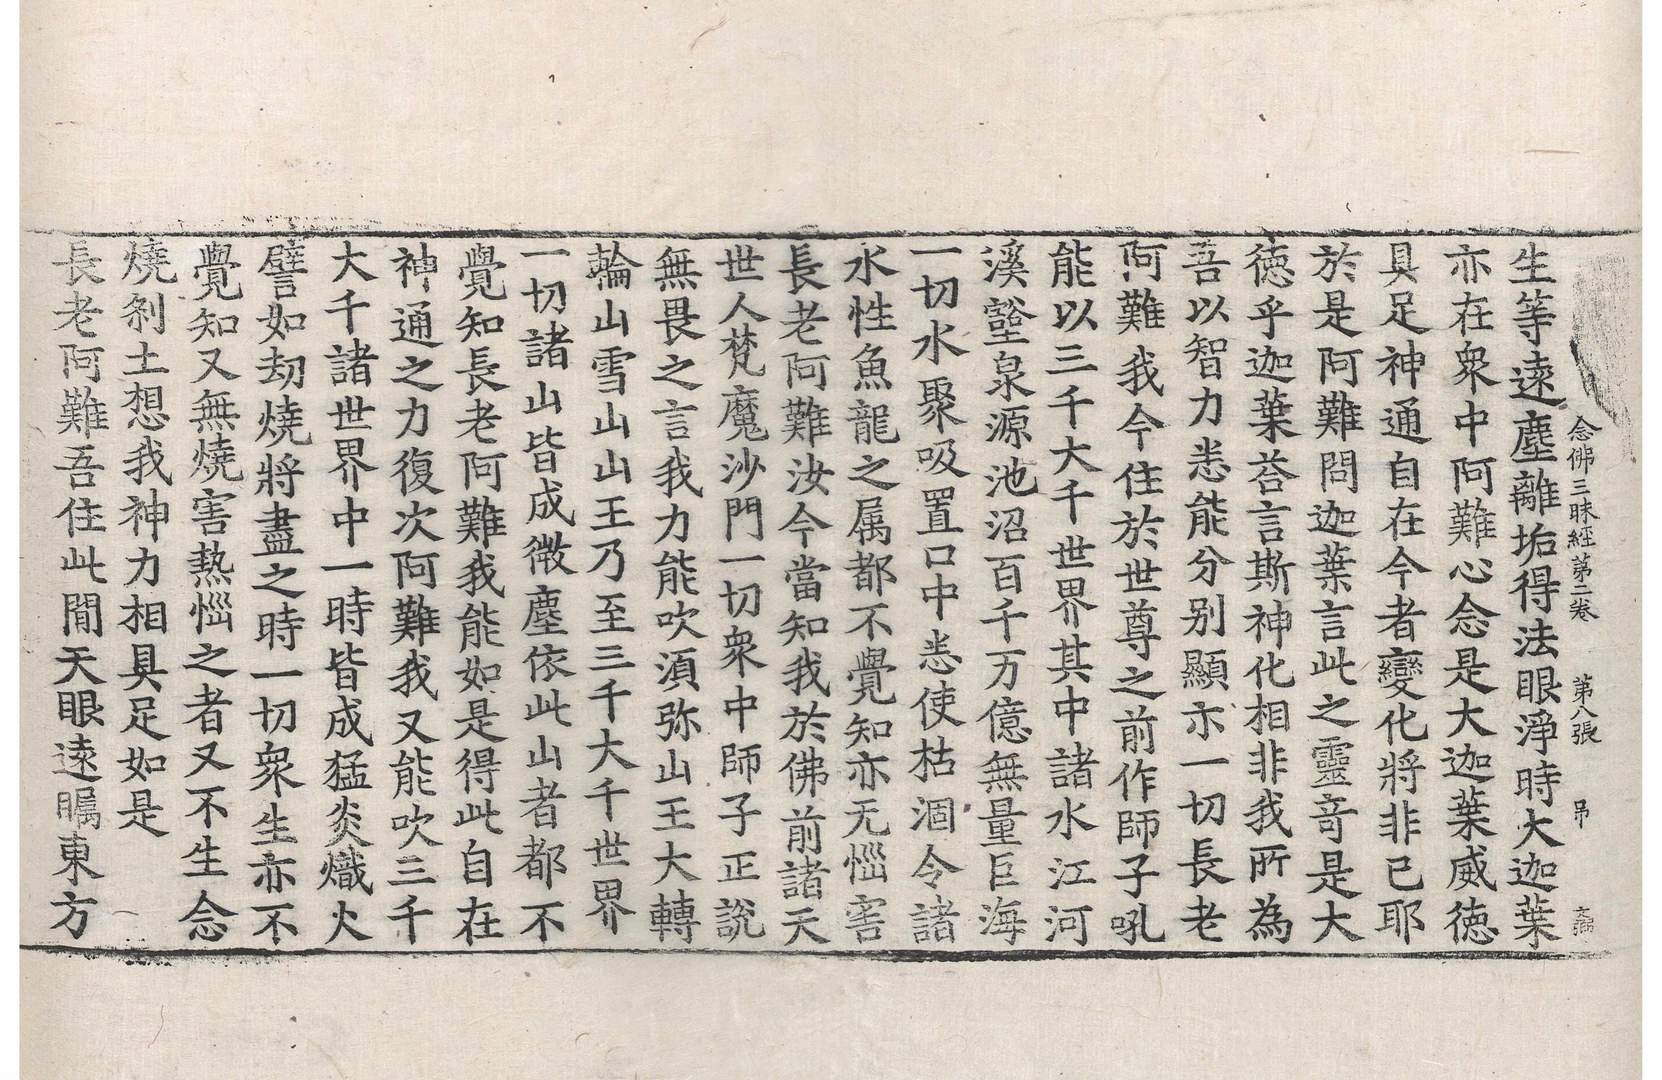 念佛三昧經第二卷 第八張 吊
生等遠塵離垢得法眼淨時大迦葉
亦在衆中阿難心念是大迦葉威德
具足神通自在今者變化將非已耶
於是阿難問迦葉言此之靈竒是大
德乎迦葉荅言斯神化相非我所為
吾以智力悉能分别顯示一切長老
阿難我今住於世尊之前作師子吼
能以三千大千世界其中諸水江河
溪壑泉源池沼百千万億無量巨海
一切水聚吸置口中悉使枯涸令諸
水性魚龍之属都不覺知亦无惱害
長老阿難汝今當知我於佛前諸天
世人梵魔沙門一切衆中師子正說
無畏之言我力能吹湏弥山王大轉
輪山雪山山王乃至三千大千世界
一切諸山皆成微塵依此山者都不
覺知長老阿難我能如是得此自在
神通之力復次阿難我又能吹三千
大千諸世界中一時皆成猛炎熾火
譬如劫燒將盡之時一切衆生亦不
覺知又無燒害熱惱之者又不生念
燒剎土想我神力相具足如是
長老阿難吾住此閒天眼遠矚東方